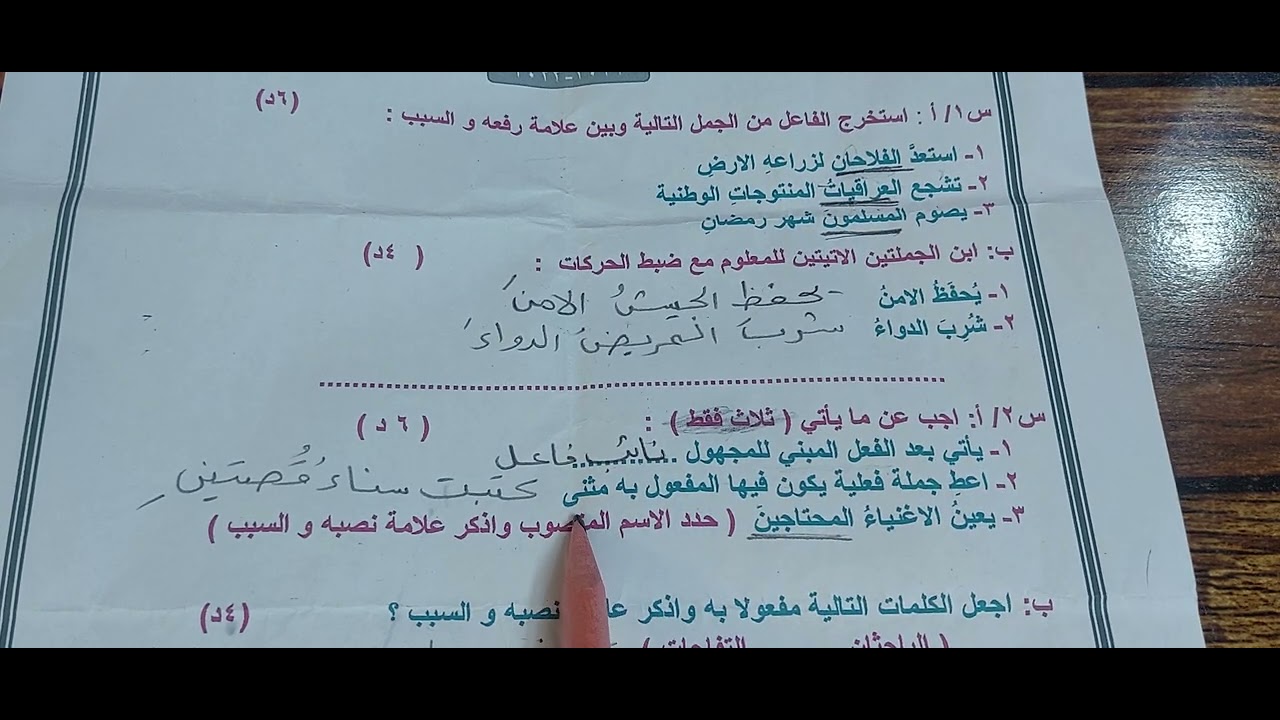 س١/ أ : استخرج الفاعل من الجمل التالية وبين علامة رفعه و السبب : (٦د)
١- استعدَّ الفلاحان لزراعهِ الارضِ
٢- تشجع العراقياتُ المنتوجاتِ الوطنية
٣- يصوم المسلمونَ شهر رمضانِ
ب: ابن الجملتين الاتيتين للمعلوم مع ضبط الحركات : ( ٤د)
١- يُحفَظُ الامنُ - يحفظ الجيشُ الامنَ
٢- شُرِبَ الدواءُ شربَ المريضُ الدواءَ
س٢/ أ: اجب عن ما يأتي ( ثلاث فقط ) : ( ٦ د)
١- يأتي بعد الفعل المبني للمجهول .............. نائب فاعل
٢- اعطِ جملة فعلية يكون فيها المفعول به مثنى كتبت سناءُ قُصتَينِ
٣- يعينُ الاغنياءُ المحتاجينَ ( حدد الاسم المنصوب واذكر علامة نصبه و السبب )
ب: اجعل الكلمات التالية مفعولا به واذكر نصبه و السبب ؟ (٤د)
( الباحثان التفاحات )